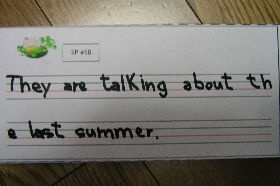 SP #68
They are talking about th
e last summer.